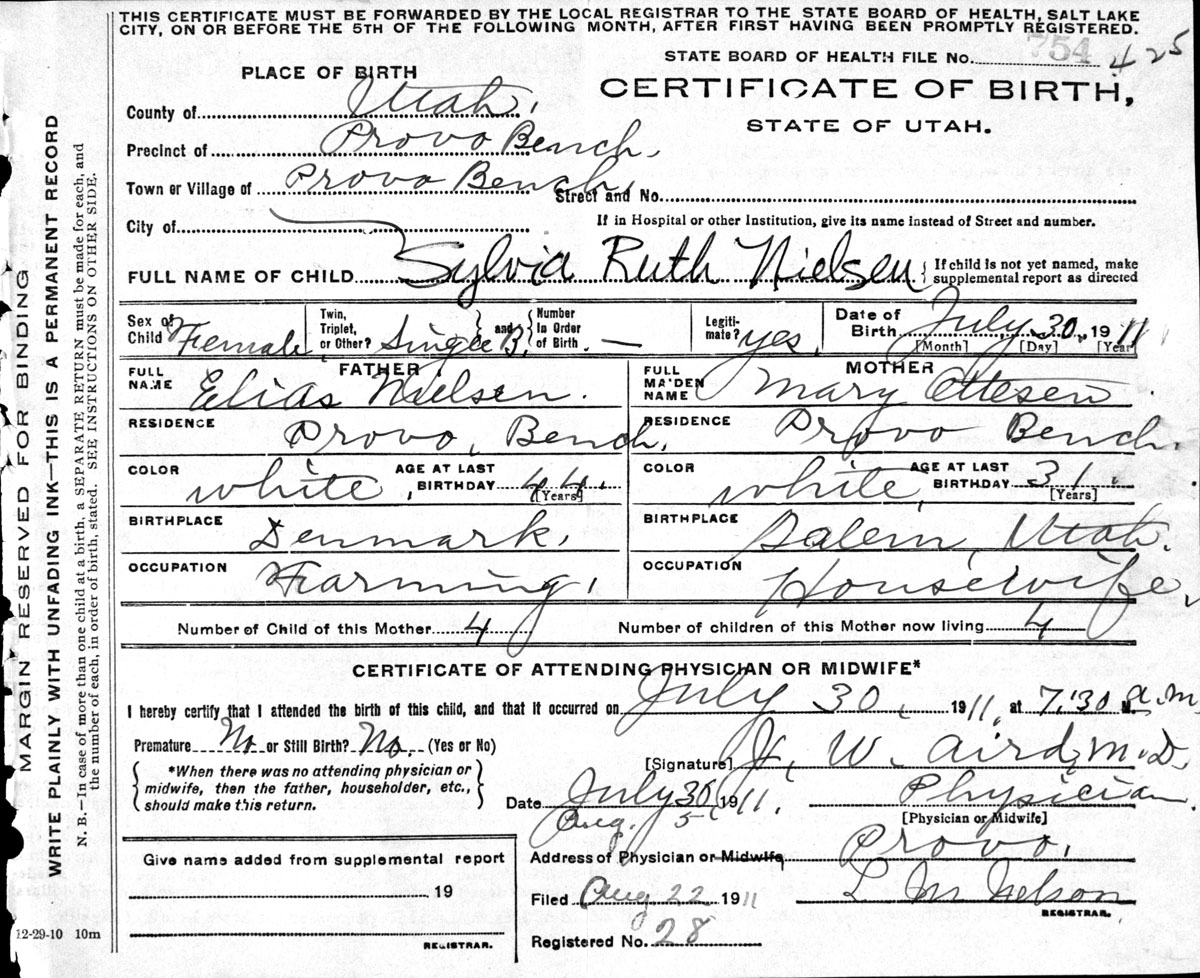 THIS CERTIFICATE MUST BE FORWARDED BY THE LOCAL REGISTRAR TO THE STATE BOARD OF HEALTH, SALT LAKE
CITY, ON OR BEFORE THE 5TH OF THE FOLLOWING MONTH, AFTER FIRST HAVING BEEN PROMPTLY REGISTERED.
STATE BOARD OF HEALTH FILE No. 754 425
PLACE OF BIRTH
CERTIFICATE OF BIRTH,
STATE OF UTAH.
County of Utah.
Precinct of Provo Bench.
Town or Village of Provo Bench, Street and No.
City of If in Hospital or other Institution, give its name instead of Street and number.
FULL NAME OF CHILD Sylvia Ruth Nielsen { If child is not yet named, make
supplemental report as directed
Sex of Child Female Twin, Triplet, or Other? Single and Number In Order of Birth. — Legiti-mate? yes. Date of Birth July 30, 1911
[Month] [Day] [Year]
FATHER MOTHER
FULL NAME Elias Nielsen. FULL MAIDEN NAME Mary Ottesen.
RESIDENCE Provo, Bench, RESIDENCE Provo Bench.
COLOR white, AGE AT LAST BIRTHDAY 44. [Years] COLOR white, AGE AT LAST BIRTHDAY 31. [Years]
BIRTHPLACE Denmark, BIRTHPLACE Salem, Utah.
OCCUPATION Farming, OCCUPATION Housewife,
Number of Child of this Mother 4 Number of children of this Mother now living 4
CERTIFICATE OF ATTENDING PHYSICIAN OR MIDWIFE*
I hereby certify that I attended the birth of this child, and that it occurred on July 30, 1911, at 7:30 a.m.
Premature No or Still Birth? No. (Yes or No)
*When there was no attending physician or
midwife, then the father, householder, etc.,
should make this return.
[Signature] J. W. Aird, M.D.
Date July 30 1911. Physician.
Aug. 5
[Physician or Midwife]
Address of Physician or Midwife Provo,
Give name added from supplemental report
19
REGISTRAR.
Filed Aug 22 1911 L M Nelson
REGISTRAR.
Registered No. 28
12-29-10 10m
MARGIN RESERVED FOR BINDING
WRITE PLAINLY WITH UNFADING INK—THIS IS A PERMANENT RECORD
N. B.—In case of more than one child at a birth, a SEPARATE RETURN must be made for each, and
the number of each, in order of birth, stated. SEE INSTRUCTIONS ON OTHER SIDE.